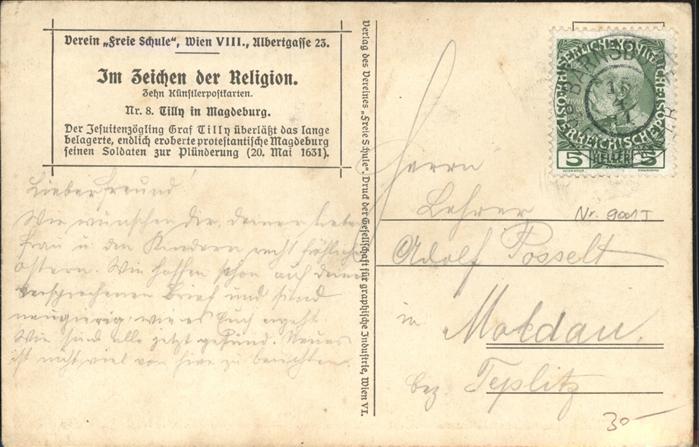 Verein „Freie Schule“, Wien VIII., Albertgasse 23.
Im Zeichen der Religion.
Zehn Künstlerpostkarten.
Nr. 8. Tilly in Magdeburg.
Der Jesuitenzögling Graf Tilly überläßt das lange
belagerte, endlich eroberte protestantische Magdeburg
seinen Soldaten zur Plünderung (20. Mai 1631).
Lieber Freund!
Wir wünschen dir, deiner lieben
Frau u den Kindern recht fröhliche
Ostern. Wir hoffen schon auf deinen
versprechenen Brief und sind
neugierig wie es Euch ergeht.
Wir sind alle jetzt gesund. Neues
ist nicht viel von hier zu berichten.
Verlag des Vereines „Freie Schule“. Druck der Gesellschaft für graphische Industrie, Wien VI.
5 HELLER 5
Herrn
Lehrer
Nr. 9001 I
Adolf Posselt
in
Moldau,
bez. Teplitz
30-